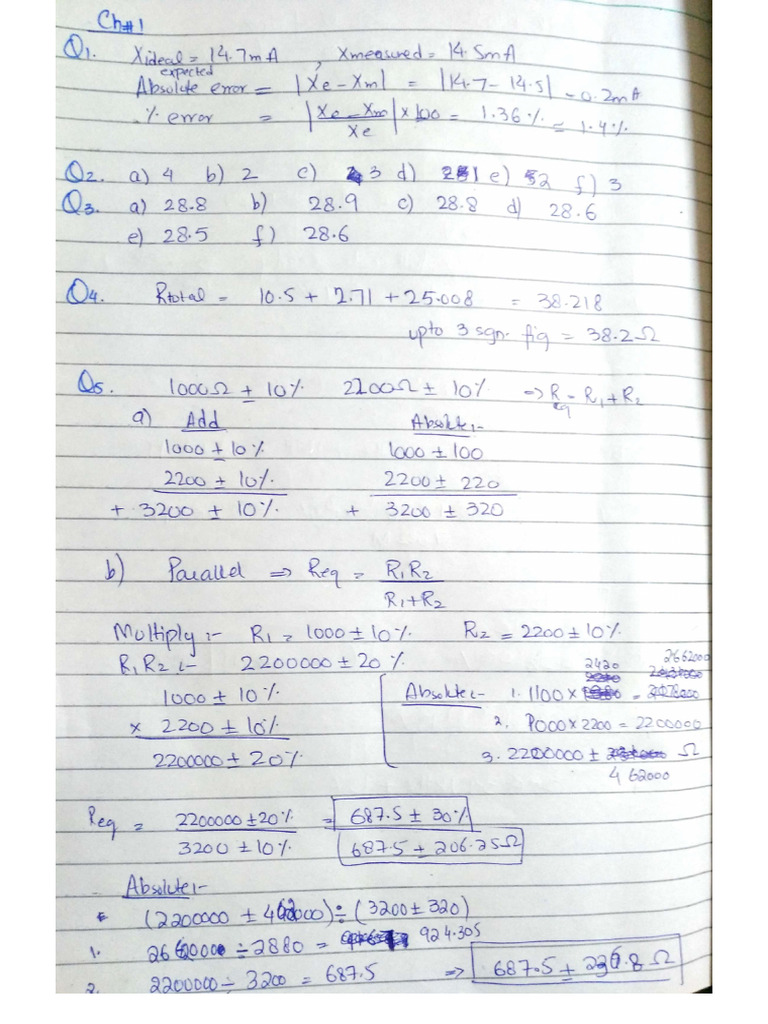 Ch#1
Q1. Xideal = 14.7mA , Xmeasured = 14.5mA
expected
Absolute error = |Xe - Xm| = |14.7 - 14.5| = 0.2mA
% error = |Xe - Xm / Xe| × 100 = 1.36% = 1.4%
Q2. a) 4 b) 2 c) 3 d) 1 e) 2 f) 3
Q3. a) 28.8 b) 28.9 c) 28.8 d) 28.6
e) 28.5 f) 28.6
Q4. Rtotal = 10.5 + 2.71 + 25.008 = 38.218
upto 3 sgn. fig = 38.2Ω
Q5. 1000Ω ± 10% 2200Ω ± 10% ⇒ Req = R1 + R2
a) Add Absolute:-
1000 ± 10% 1000 ± 100
2200 ± 10% 2200 ± 220
+ 3200 ± 10% + 3200 ± 320
b) Parallel ⇒ Req = R1R2 / R1+R2
Multiply:- R1 = 1000 ± 10% R2 = 2200 ± 10%
R1R2:- 2200000 ± 20%
1000 ± 10%
× 2200 ± 10%
2200000 ± 20%
Absolute:- 1. 1100 × 2420 = 2662000
2. 1000 × 2200 = 2200000
3. 2200000 ± 462000 Ω
Req = 2200000 ± 20% / 3200 ± 10% = 687.5 ± 30%
687.5 ± 206.25Ω
Absolute:-
(2200000 ± 462000) ÷ (3200 ± 320)
1. 2662000 ÷ 2880 = 924.305
2. 2200000 ÷ 3200 = 687.5 ⇒ 687.5 ± 236.8 Ω